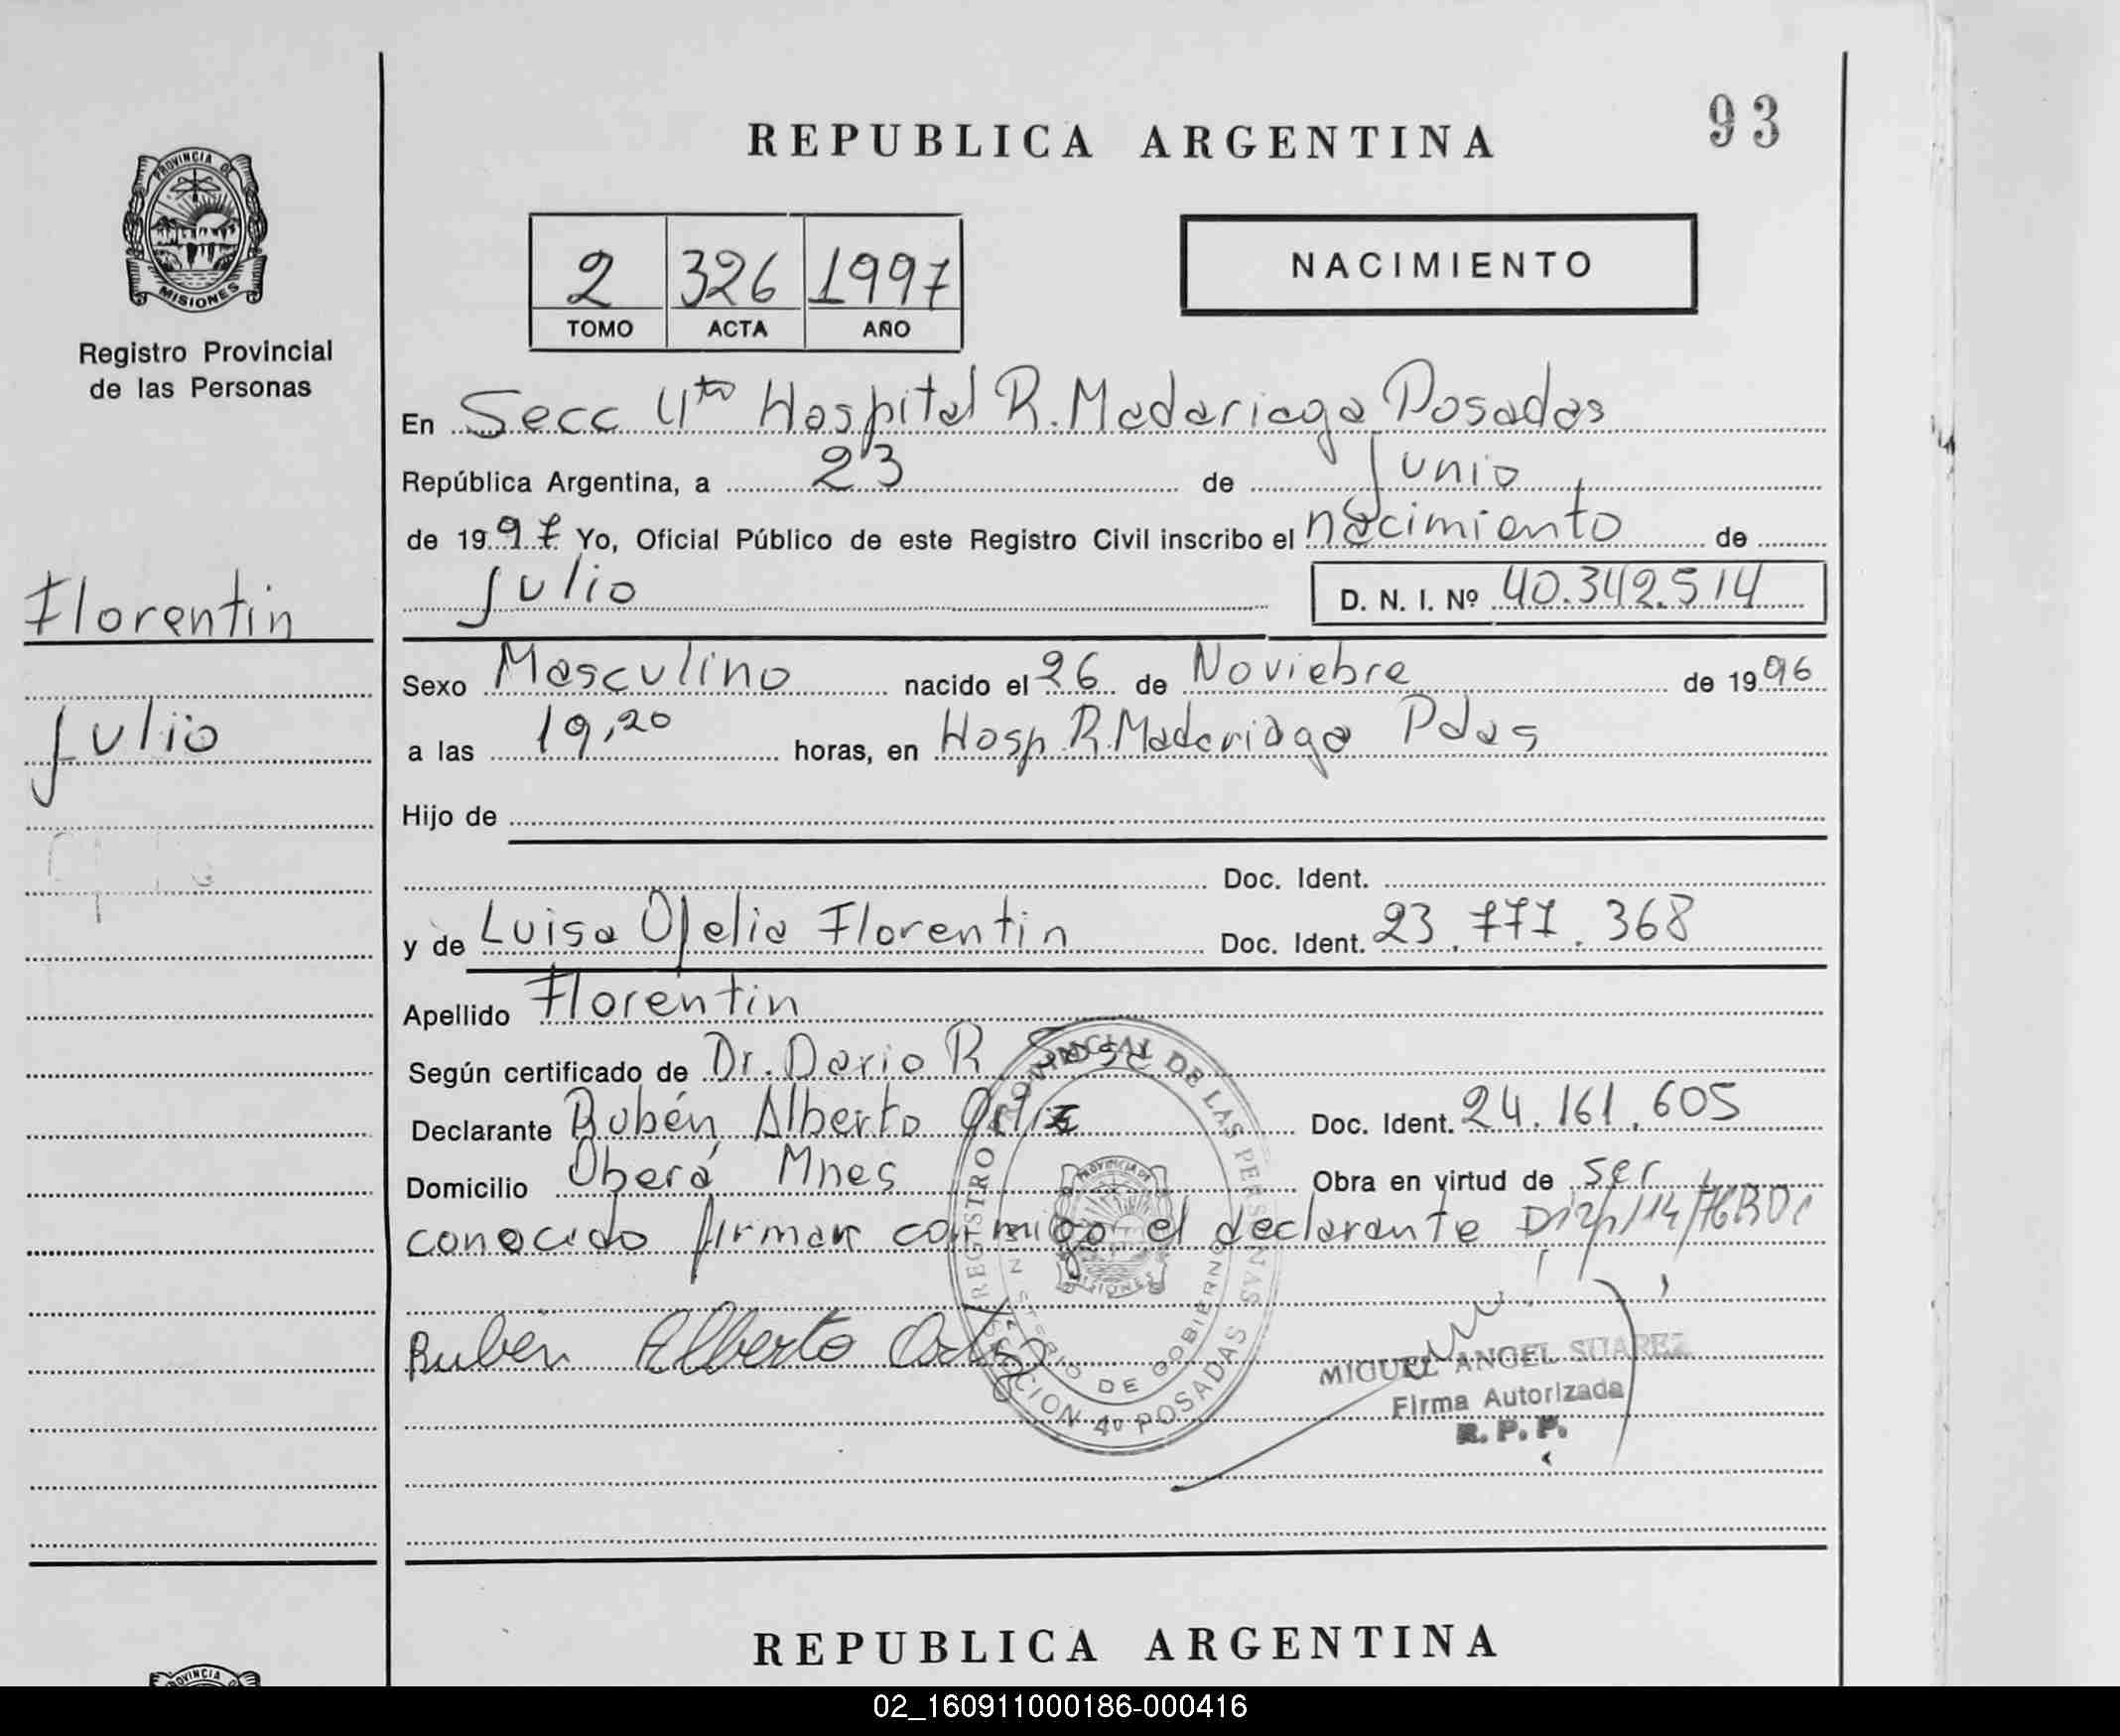 93
REPUBLICA ARGENTINA
PROVINCIA DE
MISIONES
Registro Provincial
de las Personas
2 326 1997
TOMO ACTA AÑO
NACIMIENTO
En Secc 4ta Hospital R. Madariaga Posadas
República Argentina, a 23 de Junio
de 1997 Yo, Oficial Público de este Registro Civil inscribo el nacimiento de
Julio D. N. I. Nº 40.342.514
Florentin
Julio
Sexo Masculino nacido el 26 de Noviebre de 1996
a las 19,20 horas, en Hosp R. Madariaga Pdas
Hijo de
Doc. Ident.
y de Luisa Ofelia Florentin Doc. Ident. 23.777.368
Apellido Florentin
Según certificado de Dr. Dario R Sosa
Declarante Rubén Alberto Ortiz Doc. Ident. 24.161.605
Domicilio Oberá Mnes Obra en virtud de ser
conocido firman conmigo el declarante
Ruben Alberto Ortiz
REGISTRO PROVINCIAL DE LAS PERSONAS
MINISTERIO DE GOBIERNO
SECCION 4º POSADAS
PROVINCIA DE
MISIONES
MIGUEL ANGEL SUAREZ
Firma Autorizada
R. P. P.
REPUBLICA ARGENTINA
PROVINCIA
02_160911000186-000416